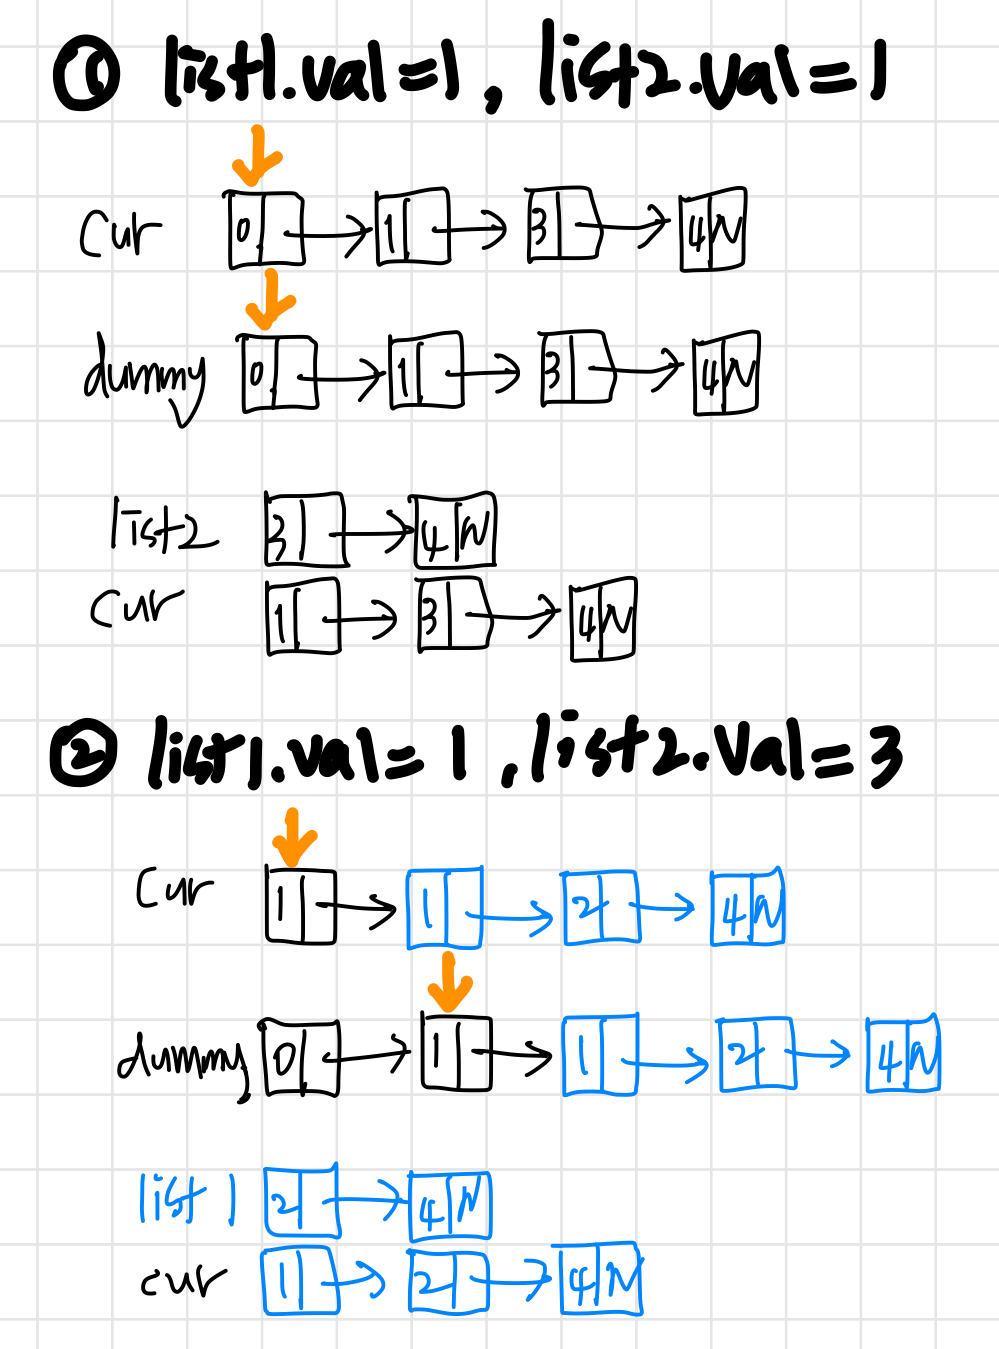 ① list1.val=1, list2.val=1
cur 0 1 3 4 N
dummy 0 1 3 4 N
list2 3 4 N
cur 1 3 4 N
② list1.val=1, list2.val=3
cur 1 1 2 4 N
dummy 0 1 1 2 4 N
list1 2 4 N
cur 1 2 4 N